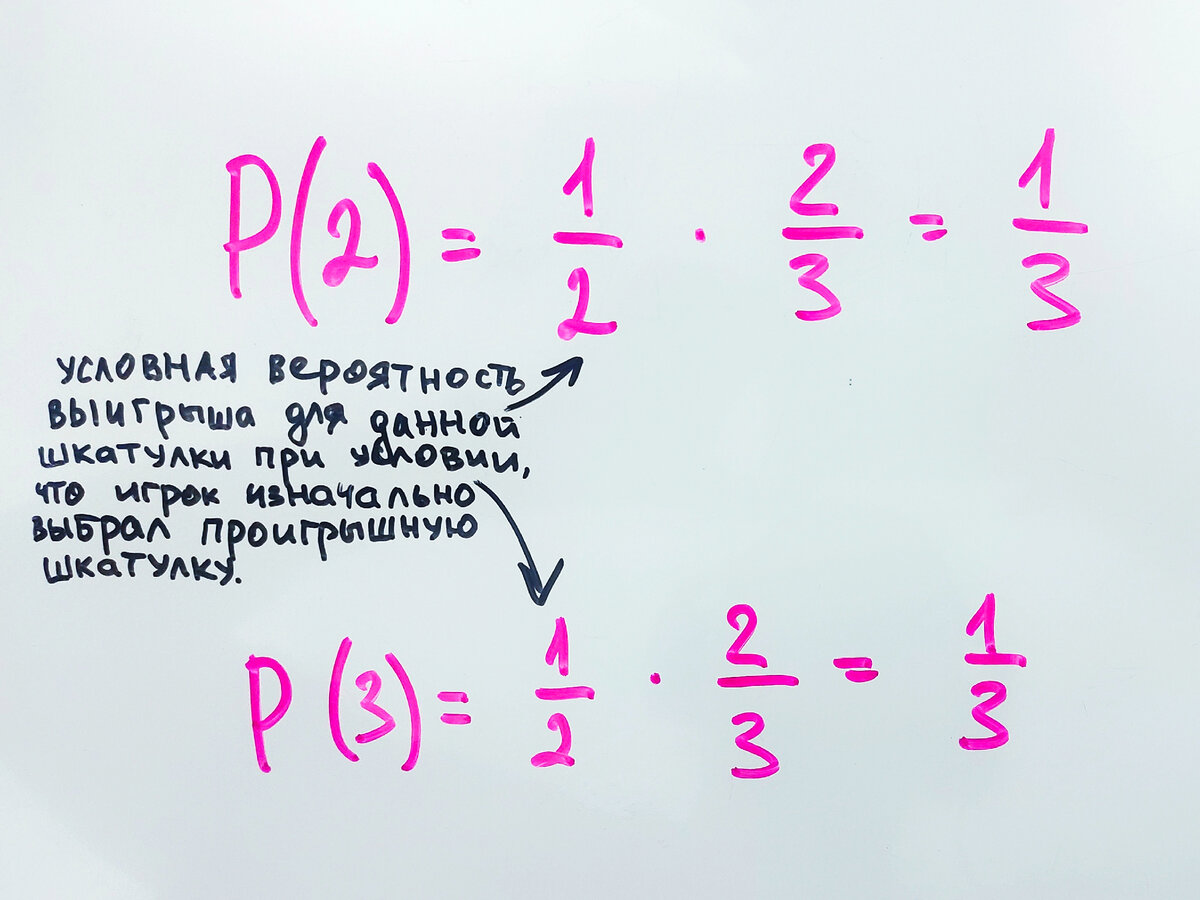 P(2) = 1/2 · 2/3 = 1/3
условная вероятность
выигрыша для данной
шкатулки при условии,
что игрок изначально
выбрал проигрышную
шкатулку.
P(3) = 1/2 · 2/3 = 1/3